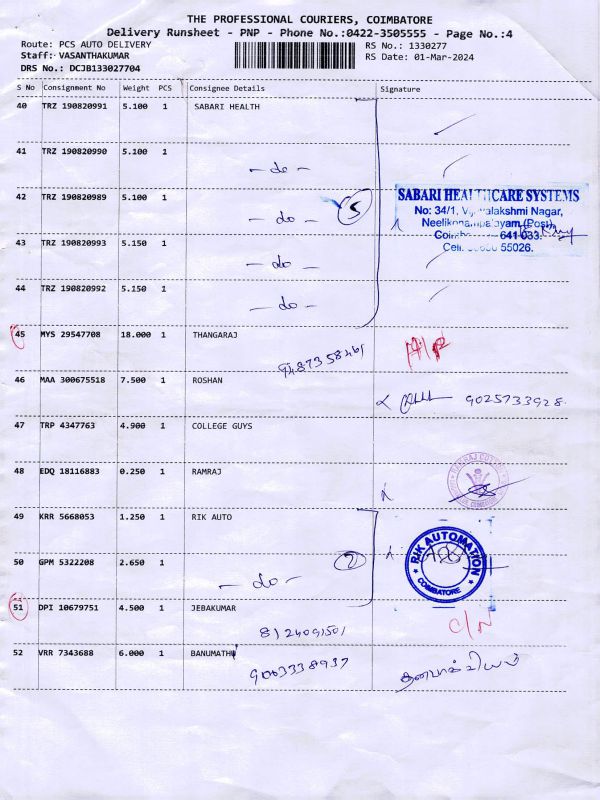 THE PROFESSIONAL COURIERS, COIMBATORE
Delivery Runsheet - PNP - Phone No.:0422-3505555 - Page No.:4
Route: PCS AUTO DELIVERY RS No.: 1330277
Staff: VASANTHAKUMAR RS Date: 01-Mar-2024
DRS No.: DCJB133027704
S No Consignment No Weight PCS Consignee Details Signature
40 TRZ 190820991 5.100 1 SABARI HEALTH
41 TRZ 190820990 5.100 1
- do -
42 TRZ 190820989 5.100 1
- do - 5
SABARI HEALTHCARE SYSTEMS
No: 34/1, Vijayalakshmi Nagar,
Neelikonampalayam (Post),
641 033.
55026.
43 TRZ 190820993 5.150 1
- do -
44 TRZ 190820992 5.150 1
- do -
45 MYS 29547708 18.000 1 THANGARAJ
9487358461
46 MAA 300675518 7.500 1 ROSHAN
9025733928
47 TRP 4347763 4.900 1 COLLEGE GUYS
48 EDQ 18116883 0.250 1 RAMRAJ
49 KRR 5668053 1.250 1 RIK AUTO
RIK AUTOMATION
COIMBATORE
50 GPM 5322208 2.650 1
- do - 2
51 DPI 10679751 4.500 1 JEBAKUMAR
8124091501 C/N
52 VRR 7343688 6.000 1 BANUMATHI
9003338937
தனபாக்கியம்